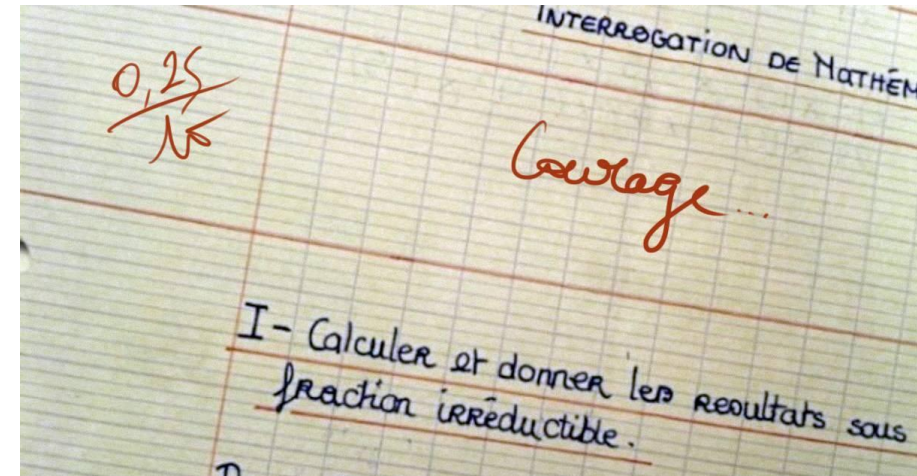 INTERROGATION DE MATHÉM
0,25
15
Courage...
I - Calculer et donner les resultats sous
fraction irréductible.